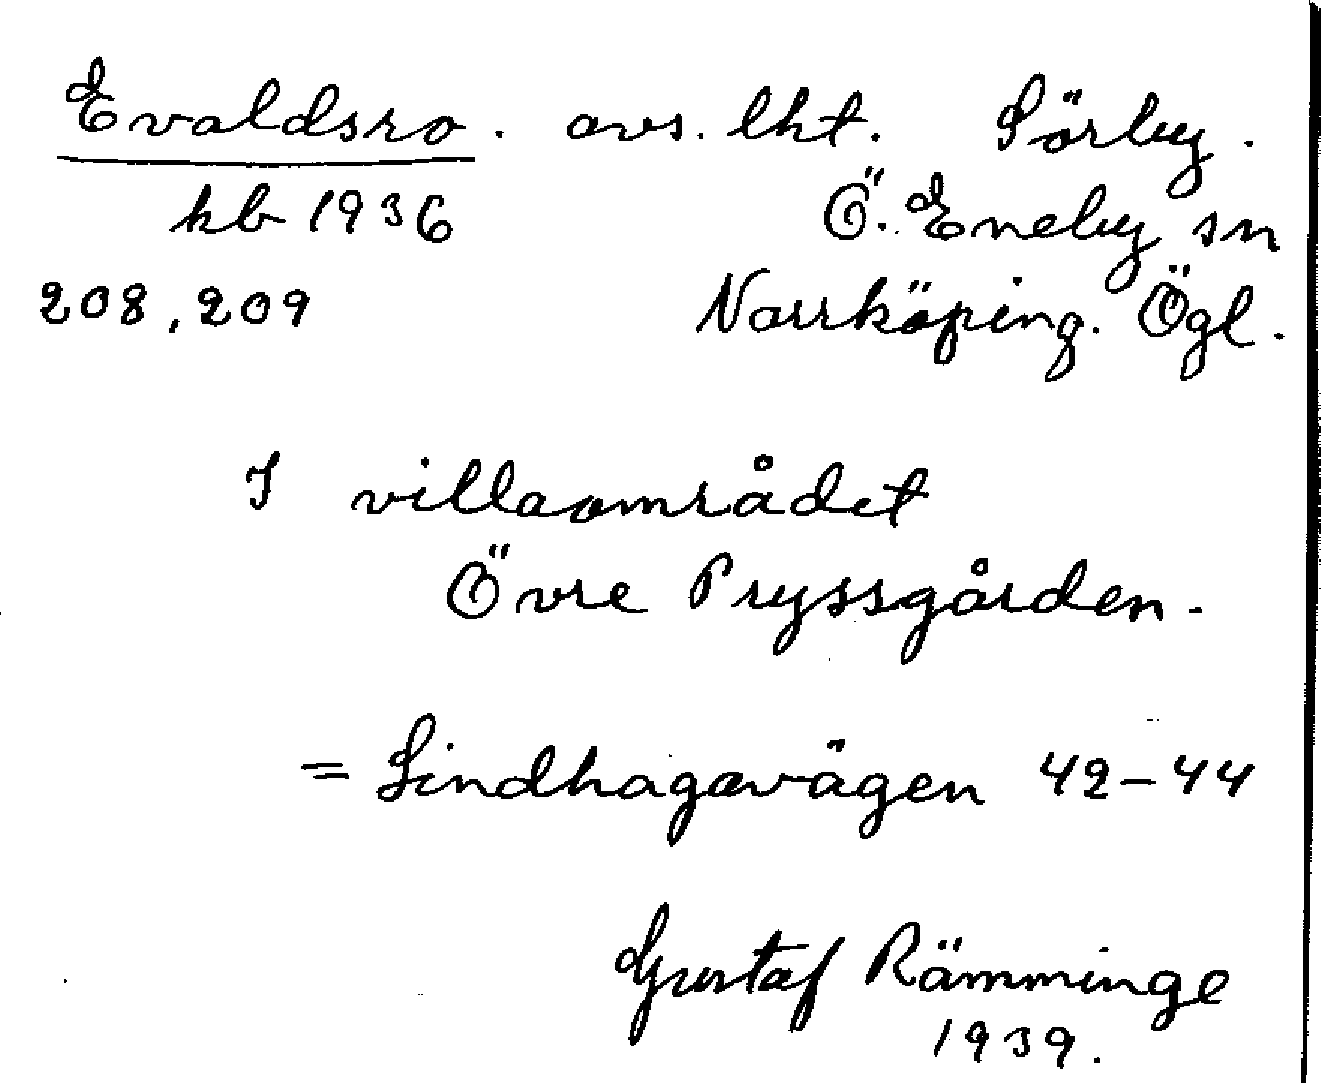 Evaldsro. avs. lht. Sörby.
kb 1936 Ö. Eneby sn
208, 209 Norrköping. Ögl.
I villaområdet
Övre Pryssgården.
= Lindhagavägen 42-44
Gustaf Rämminge
1939.